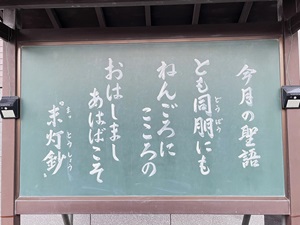 今月の聖語
とも同朋にも
どうぼう
ねんごろに
こころの
おはしまし
あはばこそ
『末灯鈔』
まっとうしょう